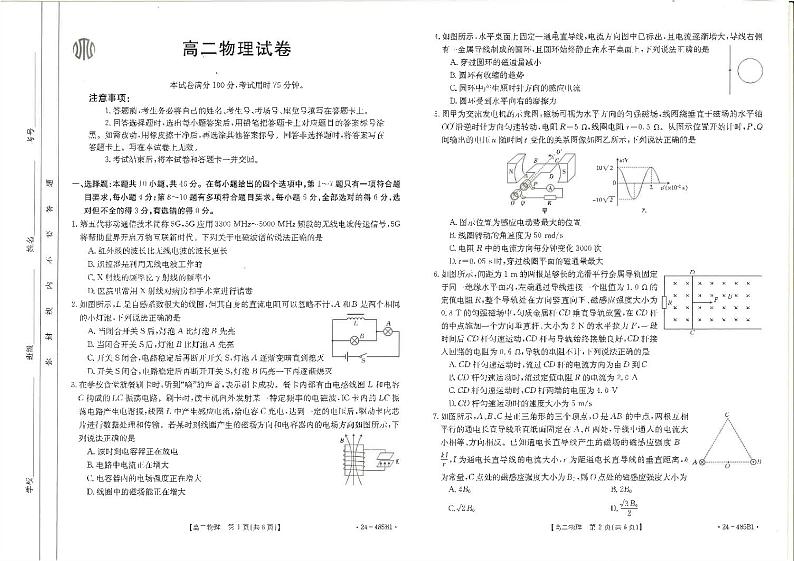 高二物理试卷
本试卷满分100分,考试用时75分钟。
注意事项:
1.答题前,考生务必将自己的姓名、考生号、考场号、座位号填写在答题卡上。
2.回答选择题时,选出每小题答案后,用铅笔把答题卡上对应题目的答案标号涂
黑。如需改动,用橡皮擦干净后,再选涂其他答案标号。回答非选择题时,将答案写在
答题卡上。写在本试卷上无效。
3.考试结束后,将本试卷和答题卡一并交回。
一、选择题:本题共10小题,共46分。在每小题给出的四个选项中,第1~7题只有一项符合题
目要求,每小题4分;第8~10题有多项符合题目要求,每小题6分,全部选对的得6分,选
对但不全的得3分,有选错的得0分。
1.第五代移动通信技术简称5G,5G应用3300 MHz~5000 MHz频段的无线电波传递信号,5G
将帮助世界开启万物互联新时代。下列关于电磁波谱的说法正确的是
A.红外线的波长比无线电波的波长更长
B.遥控器是利用无线电波工作的
C.X射线的频率比γ射线的频率小
D.医院里常用X射线对病房和手术室进行消毒
2.如图所示,L是自感系数很大的线圈,但其自身的直流电阻可以忽略不计,A和B是两个相同
的小灯泡,下列说法正确的是
A.当闭合开关S后,灯泡A比灯泡B先亮
B.当闭合开关S后,灯泡B比灯泡A先亮
C.开关S闭合,电路稳定后再断开开关S,灯泡A逐渐变暗直到熄灭
D.开关S闭合,电路稳定后再断开开关S,灯泡B闪亮一下再逐渐熄灭
L
A
B
S
3.在学校食堂就餐刷卡时,听到“嘀”的声音,表示刷卡成功。餐卡内都有由电感线圈L和电容
C构成的LC振荡电路。刷卡时,读卡机向外发射某一特定频率的电磁波,IC卡内的LC振
荡电路产生电谐振,线圈L中产生感应电流,给电容C充电,达到一定的电压后,驱动卡内芯
片进行数据处理和传输。若某时刻线圈产生的磁场方向和电容器内的电场方向如图所示,下
列说法正确的是
A.该时刻电容器正在放电
B.电路中电流正在增大
C.电容器内的电场强度正在增大
D.线圈中的磁场能正在增大
【高二物理 第1页(共6页)】
·24-485B1·
4.如图所示,水平桌面上固定一通电直导线,电流方向图中已标出,且电流逐渐增大,导线右侧
有一金属导线制成的圆环,且圆环始终静止在水平桌面上,下列说法正确的是
A.穿过圆环的磁通量减小
B.圆环有收缩的趋势
C.圆环中产生顺时针方向的感应电流
D.圆环受到水平向右的摩擦力
5.图甲为交流发电机的示意图,磁场可视为水平方向的匀强磁场,线圈绕垂直于磁场的水平轴
OO′沿逆时针方向匀速转动,电阻R=5 Ω,线圈电阻r=0.5 Ω。从图示位置开始计时,P、Q
间输出的电压u随时间t变化的关系图像如图乙所示,下列说法正确的是
甲
乙
A.图示位置为感应电动势最大的位置
B.线圈转动的角速度为50 rad/s
C.电阻R中的电流方向每分钟变化3000次
D.t=0.05 s时,穿过线圈平面的磁通量最大
6.如图所示,间距为1 m的两根足够长的光滑平行金属导轨固定
于同一绝缘水平面内,左端通过导线连接一个阻值为1.0 Ω的
定值电阻R,整个导轨处在方向竖直向下、磁感应强度大小为
的匀强磁场中,匀质金属杆CD垂直导轨放置,在CD杆
的中点施加一个方向垂直杆、大小为2 N的水平拉力F,一段
时间后CD杆匀速运动,CD杆与导轨始终接触良好,CD杆接
入回路的电阻为0.6 Ω,导轨的电阻不计,下列说法正确的是
A.CD杆匀速运动时,流过CD杆的电流方向为由D到C
B.CD杆匀速运动时,流过定值电阻R的电流为2.0 A
C.CD杆匀速运动时,CD杆两端的电压为4.0 V
D.CD杆匀速运动时的速度大小为5 m/s
7.如图所示,A、B、C是正三角形的三个顶点,O是AB的中点,两根互相
平行的通电长直导线垂直纸面固定在A、B两处,导线中通入的电流大
小相等、方向相反。已知通电长直导线产生的磁场的磁感应强度B=
kI/r,I为通电长直导线的电流大小,r为距通电长直导线的垂直距离,k
为常量,C点处的磁感应强度大小为B₀,则O点处的磁感应强度大小为
A.4B₀
B.2B₀
【高二物理 第2页(共6页)】
·24-485B1·
学校
班级
姓名
考号
密 封 线 内 不 要 答 题